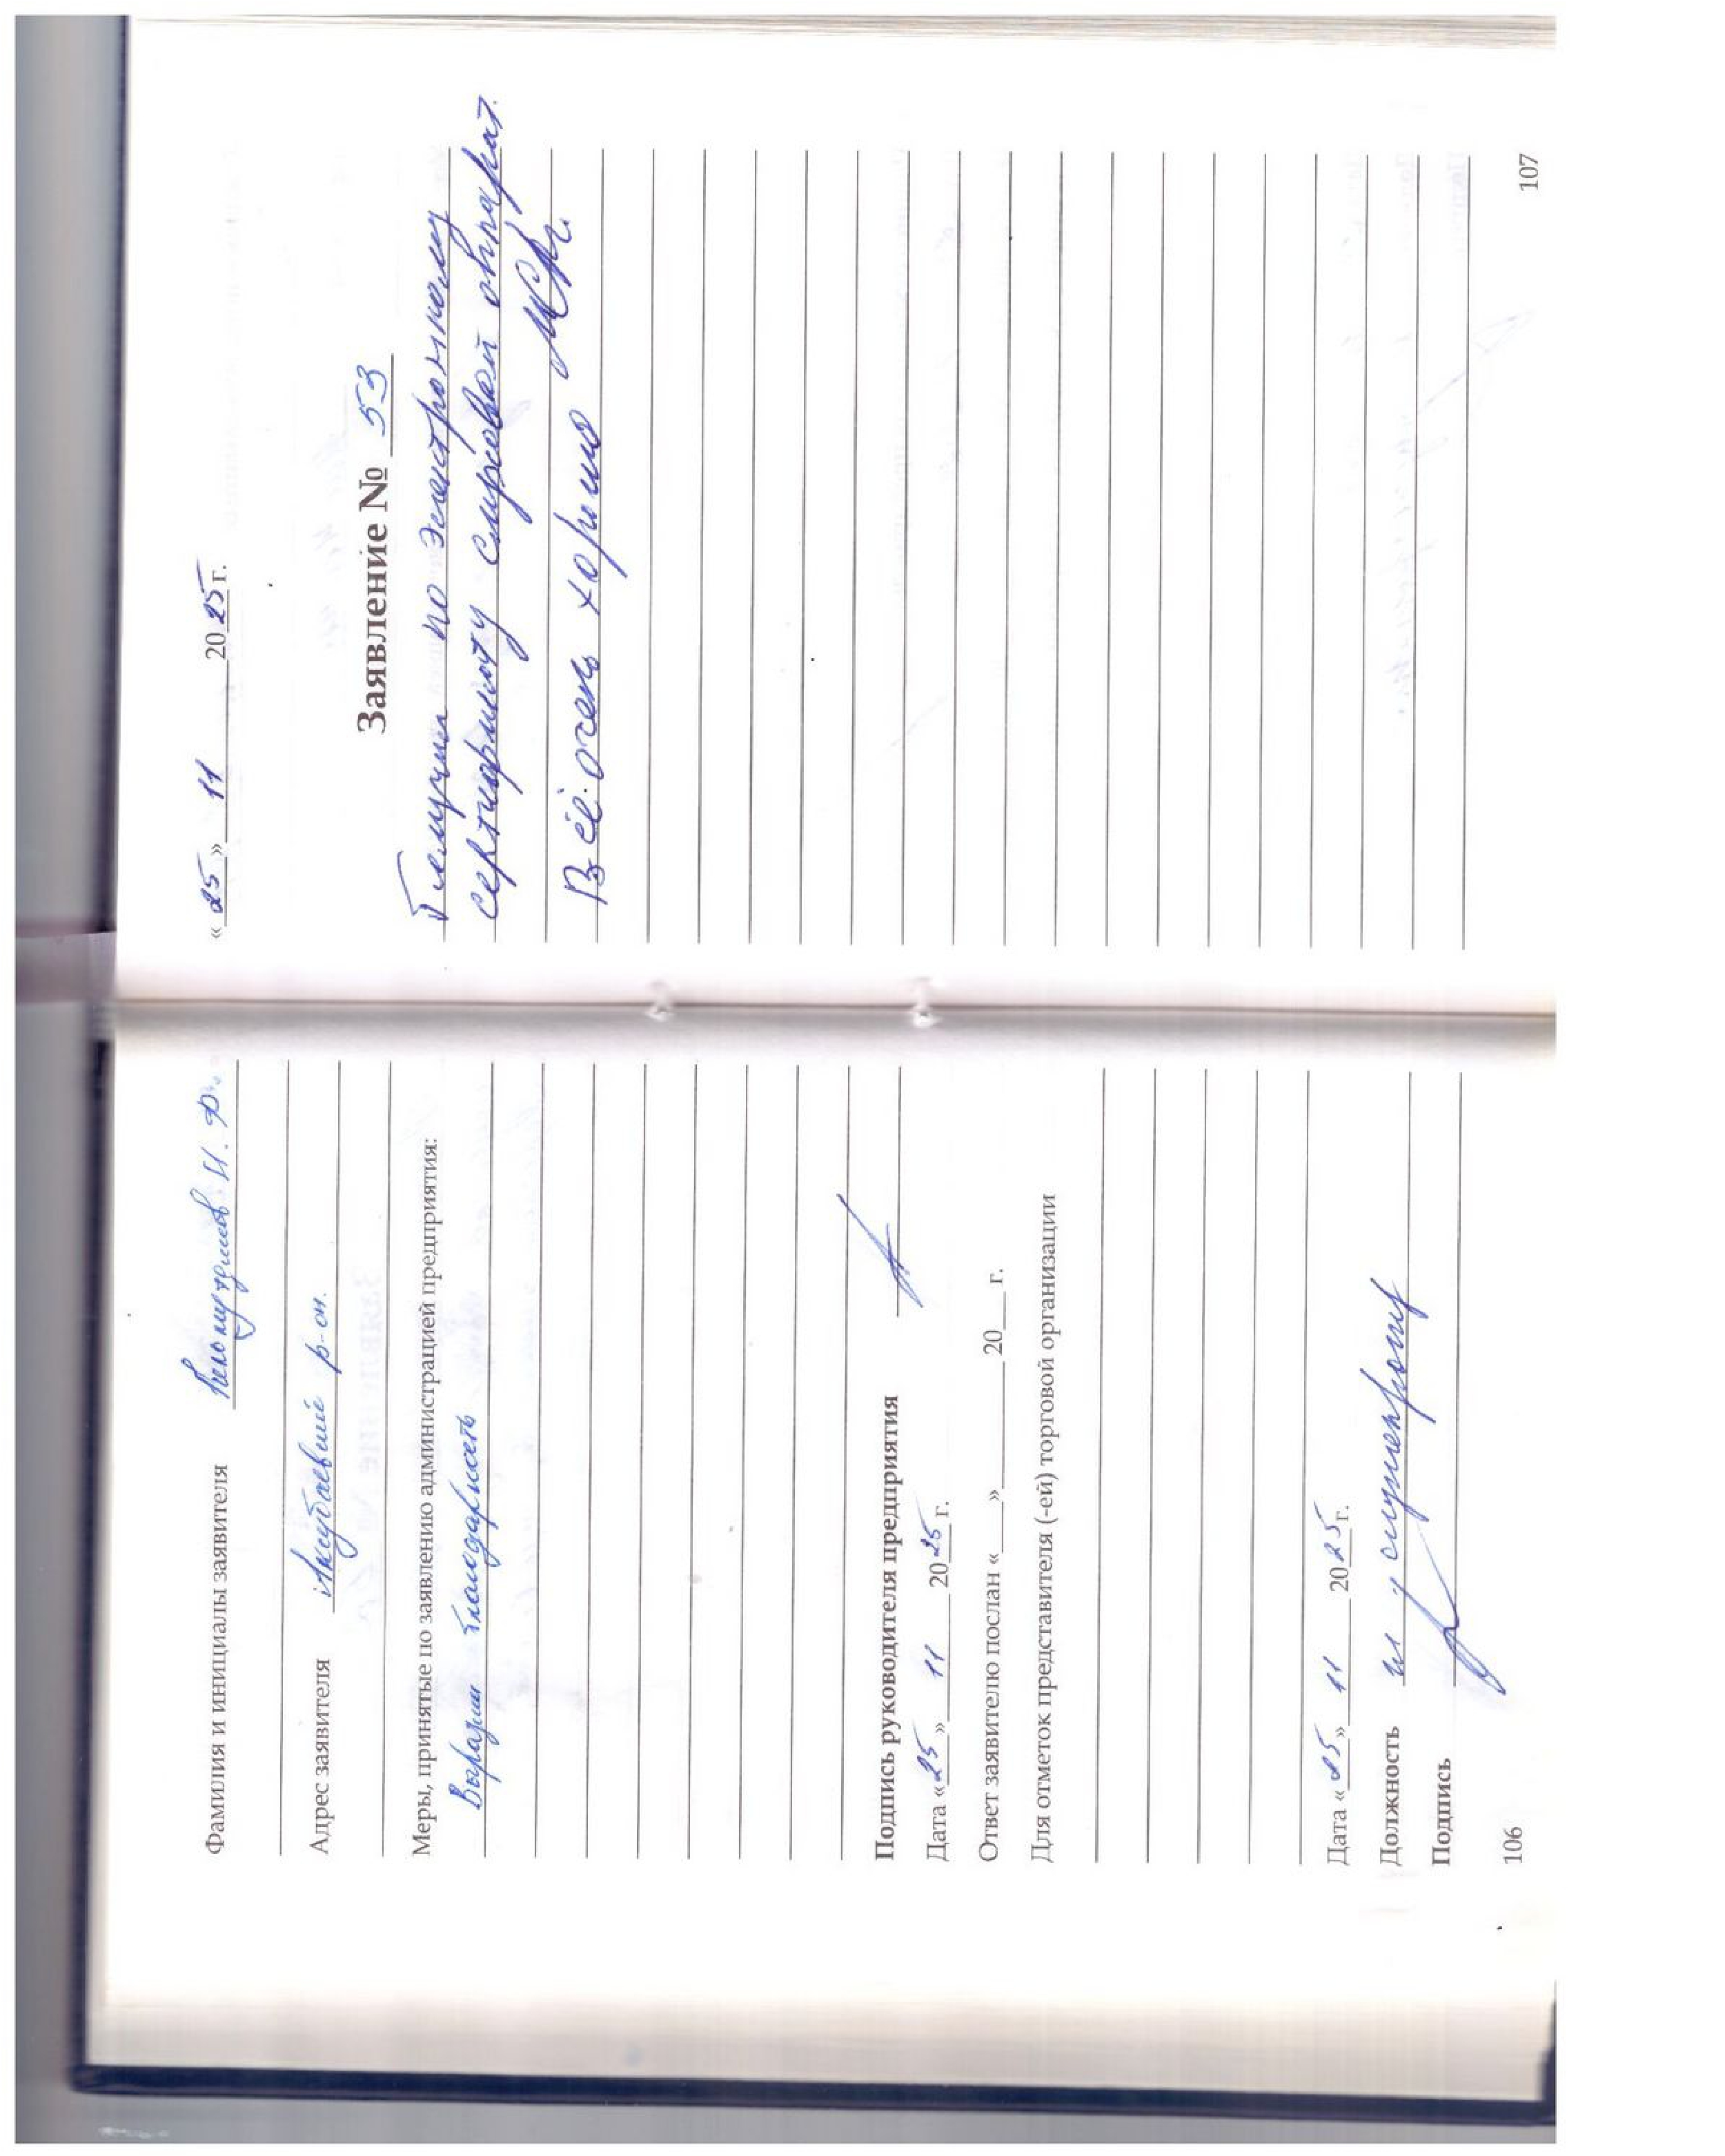 Фамилия и инициалы заявителя И. Ф.
Адрес заявителя Аксубаевский р-он.
Меры, принятые по заявлению администрацией предприятия:
Выразили благодарность
Подпись руководителя предприятия
Дата «25» 11 2025 г.
Ответ заявителю послан «___» ______ 20___ г.
Для отметок представителя (-ей) торговой организации
Дата «25» 11 2025г.
Должность
Подпись
106
«25» 11 2025г.
Заявление № 53
Получили по электронному
сертификату слуховой аппарат.
Всё очень хорошо
107